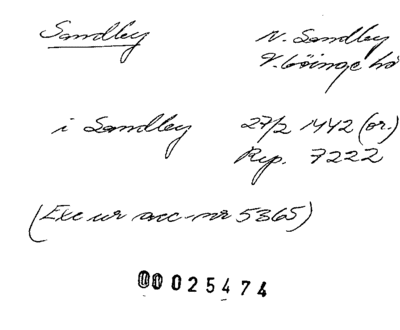 Sandby
N. Sandby
V. Göinge hd
i Sandby
27/2 1442 (or.)
Rep. 7222
(Exc ur acc-nr 5365)
00025474